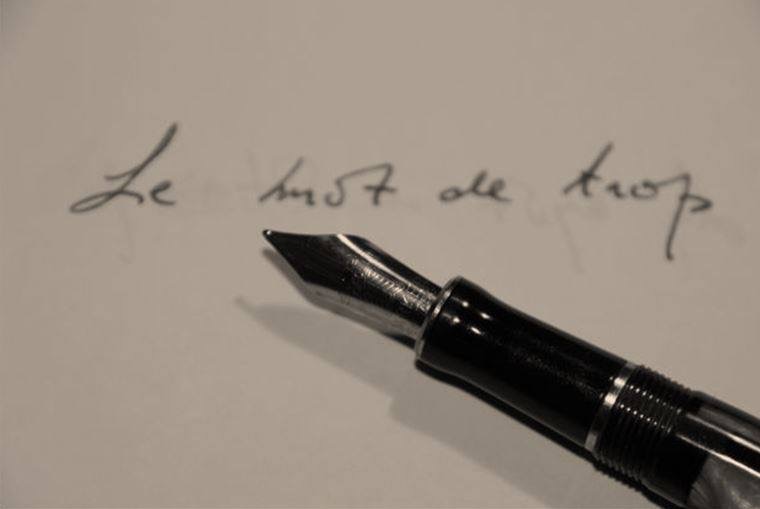 Le mot de trop